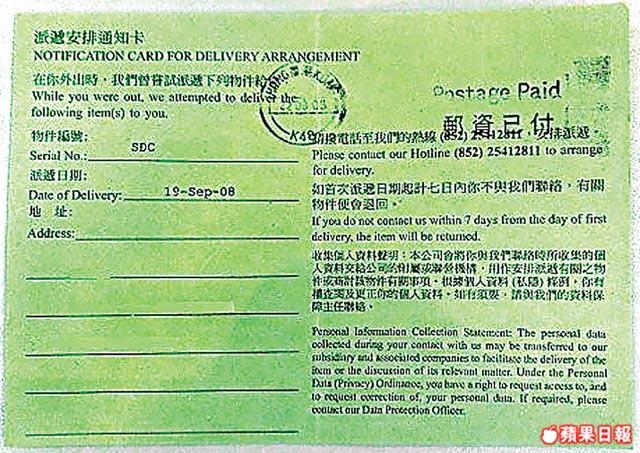 派遞安排通知卡
NOTIFICATION CARD FOR DELIVERY ARRANGEMENT
在你外出時，我們曾嘗試派遞下列物件給
While you were out, we attempted to deliver the
following item(s) to you.
物件編號:
Serial No.: SDC
派遞日期:
Date of Delivery: 19-Sep-08
地 址:
Address:
Postage Paid
郵資已付
請撥電話至我們的熱線 (852) 25412811，安排派遞。
Please contact our Hotline (852) 25412811 to arrange
for delivery.
如首次派遞日期起計七日內你不與我們聯絡，有關
物件便會退回。
If you do not contact us within 7 days from the day of first
delivery, the item will be returned.
收集個人資料聲明：本公司會將你與我們聯絡時所收集的個
人資料交給公司的附屬或聯營機構，用作安排派遞有關之物
件或商討該物件有關事項。根據個人資料 (私隱) 條例，你有
權查閱及更正你的個人資料。如有須要，請與我們的資料保
障主任聯絡。
Personal Information Collection Statement: The personal data
collected during your contact with us may be transferred to our
subsidiary and associated companies to facilitate the delivery of the
item or the discussion of its relevant matter. Under the Personal
Data (Privacy) Ordinance, you have a right to request access to, and
to request correction of, your personal data. If required, please
contact our Data Protection Officer.
蘋果日報